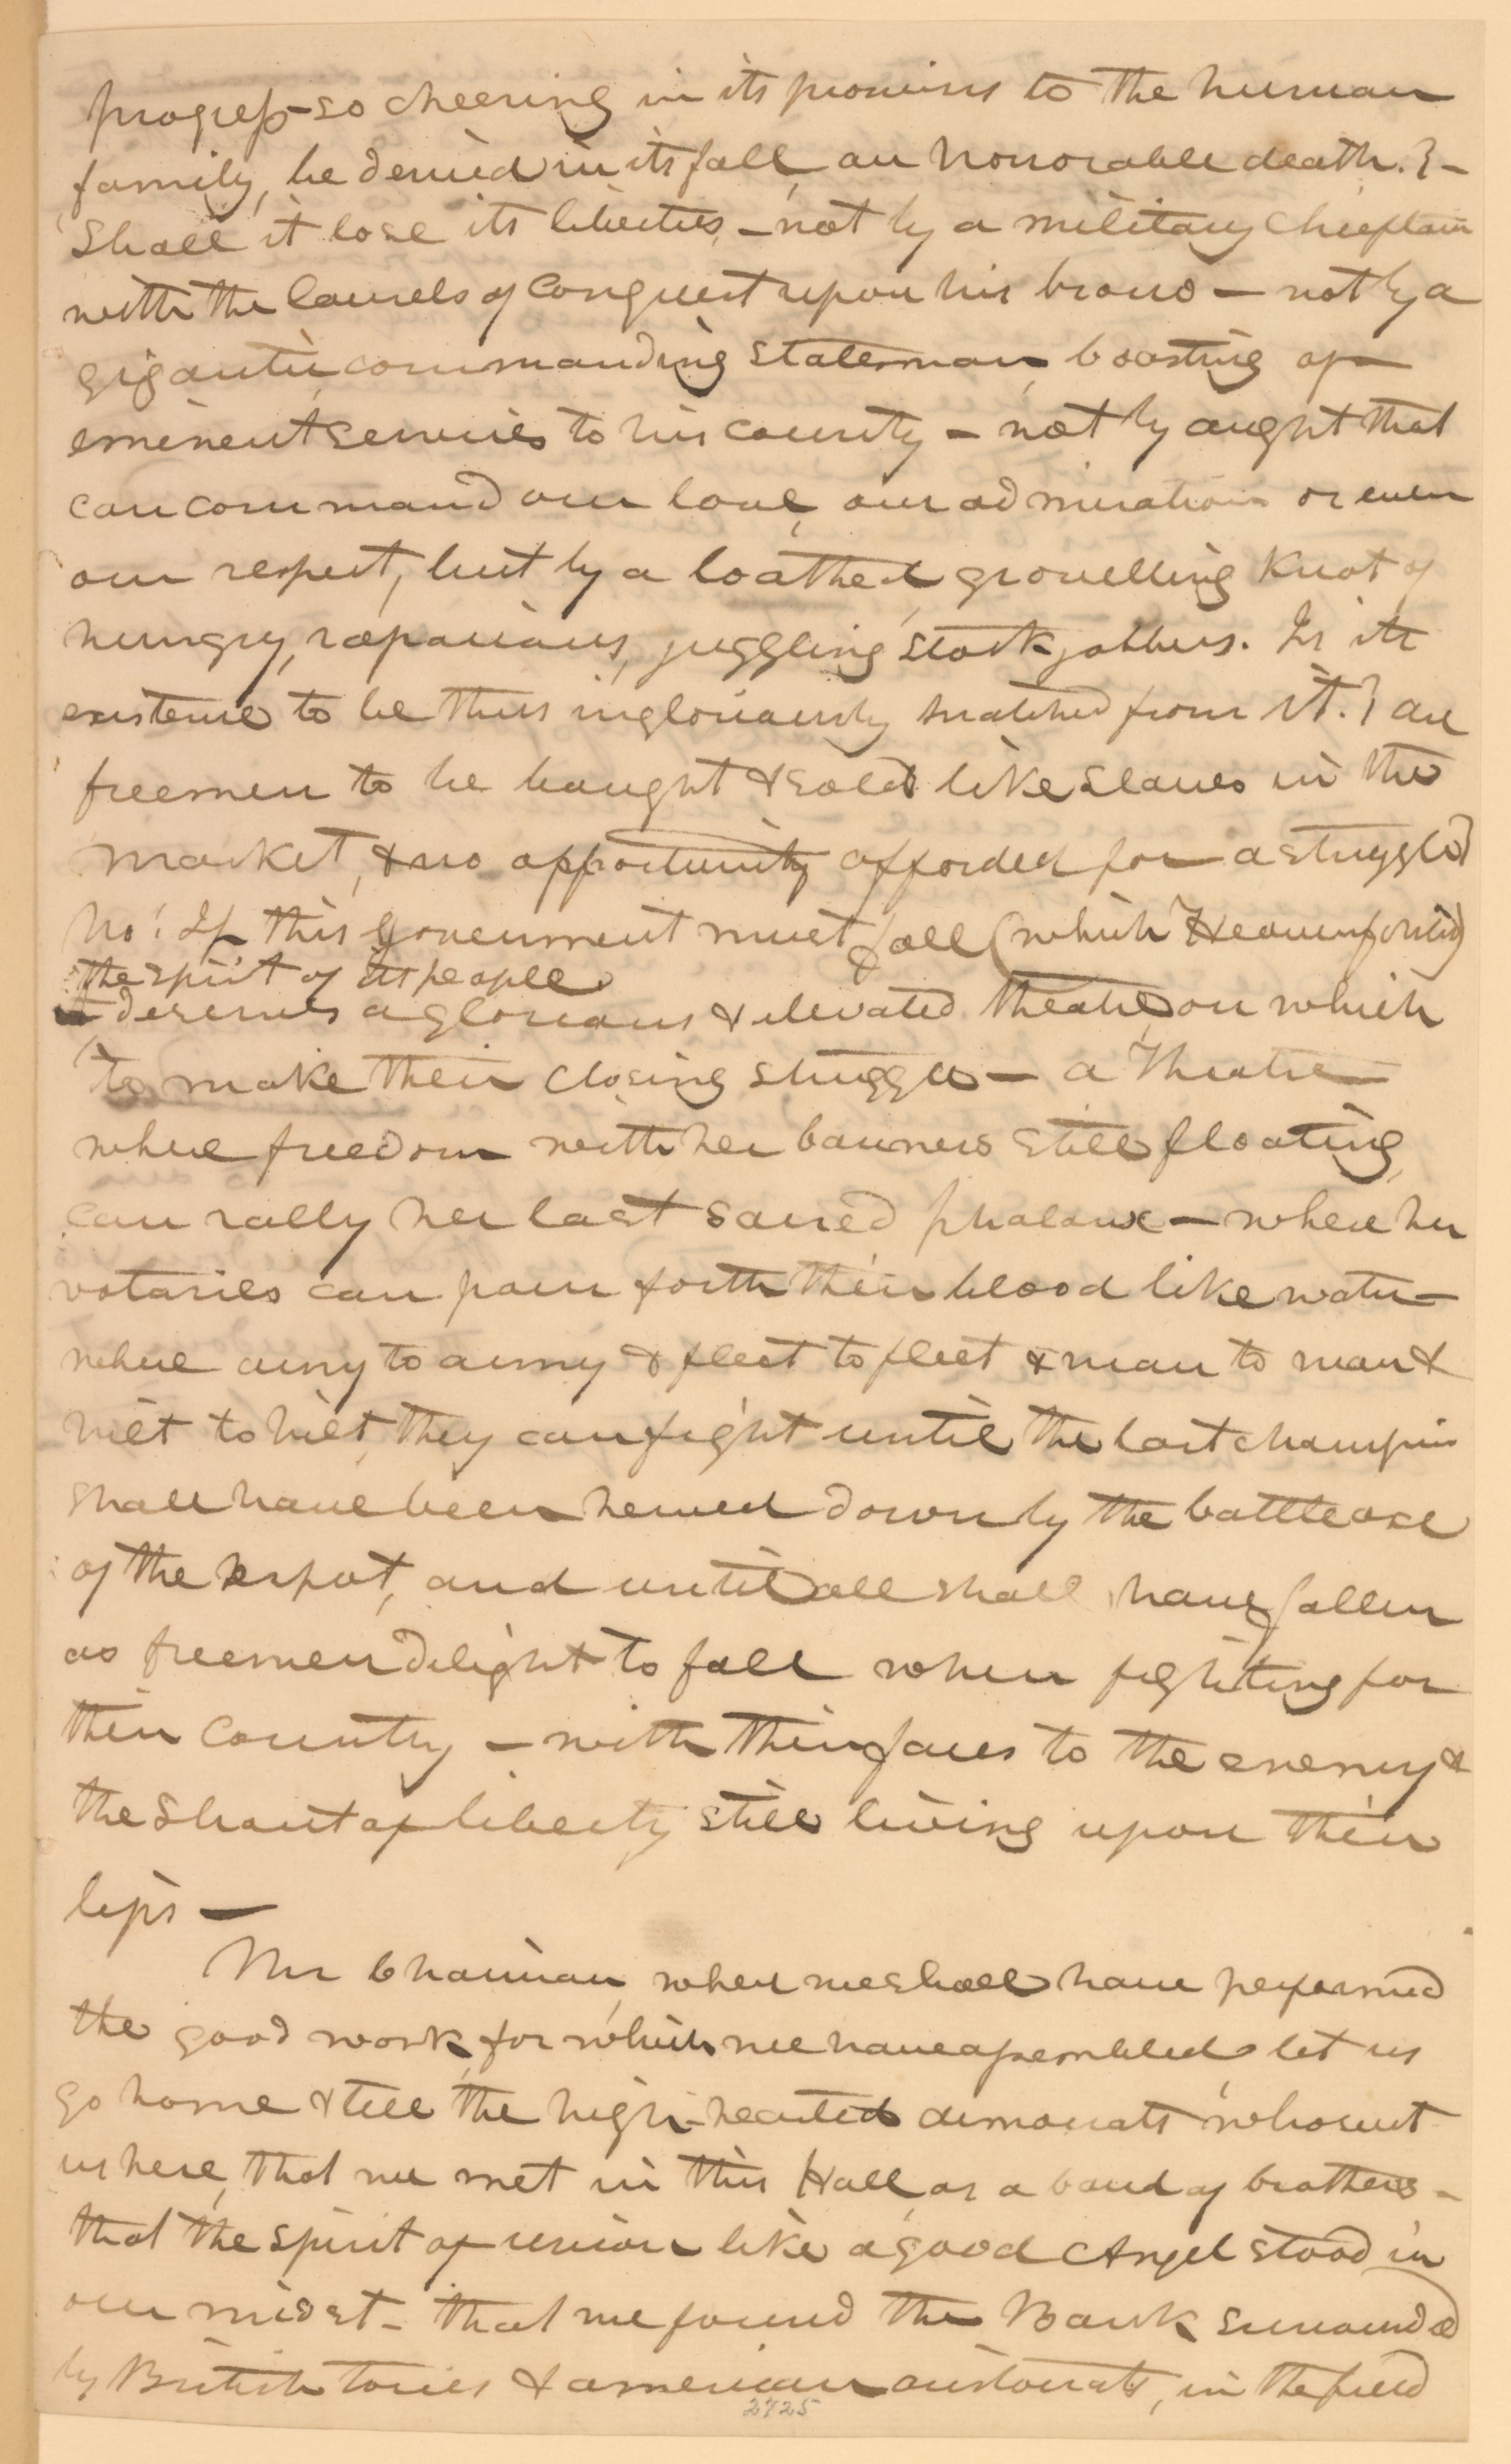 progress—so cheering in its promises to the human
family, be denied in its fall, an honorable death?—
Shall it lose its liberties,—not by a military chieftain
with the laurels of conquest upon his brow—not by a
gigantic, commanding statesman, boasting of
eminent services to his country—not by aught that
can command our love, our admiration or even
our respect, but by a loathed, grovelling knot of
hungry, rapacious, juggling stock jobbers. Is its
existence to be thus ingloriously snatched from it? are
freemen to be bought & sold like slaves in the
market, & no opportunity afforded for a struggle?
No! If this government must fall (which Heaven forbid)
the spirit of its people
it deserves a glorious & elevated theatre, on which
to make their closing struggle—a Theatre
where freedom with her banners still floating,
can rally her last sacred phalanx—where her
votaries can pour forth their blood like water—
where army to army & fleet to fleet & man to man &
hilt to hilt, they can fight until the last champion
shall have been hewed down by the battle axe
of the despot, and until all shall have fallen
as freemen delight to fall when fighting for
their country—with their faces to the enemy &
the shout of liberty still living upon their
lips—
Mr Chairman, when we shall have performed
the good work, for which we have assembled, let us
go home & tell the high-hearted democrats who sent
us here, that we met in this Hall as a band of brothers—
that the spirit of union like a good Angel stood in
our midst—that we found the Bank surrounded
by British tories & american aristocrats, in the field
2725